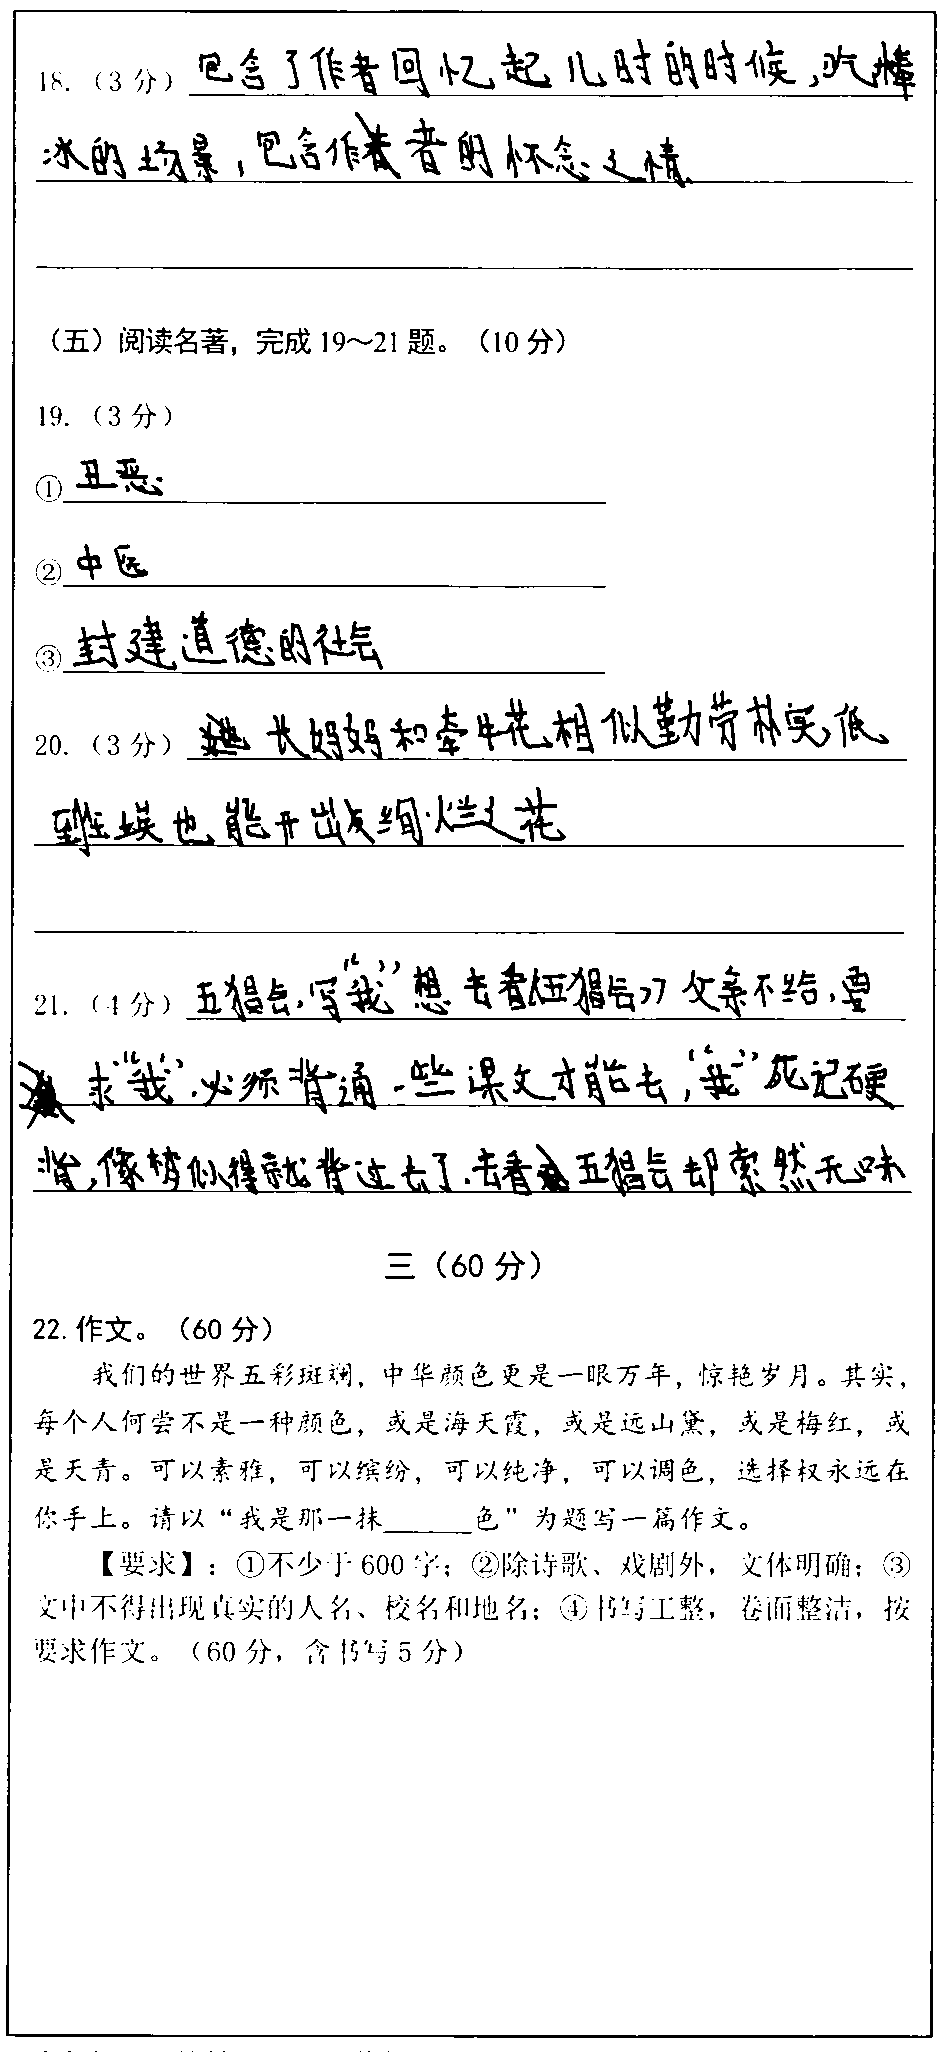 18.（3 分）包含了作者回忆起儿时的时候，吃棒
冰的场景，包含作者的怀念之情
（五）阅读名著，完成 19～21 题。（10 分）
19.（3 分）
①丑恶
②中医
③封建道德的社会
20.（3 分）长妈妈和牵牛花相似勤劳朴实低
到尘埃也能开出绚烂之花
21.（4 分）五猖会，写“我”想去看五猖会，父亲不给，要
求“我”必须背通一些课文才能去，“我”死记硬
背，像梦似得就背过去了，去看五猖会却索然无味
三（60 分）
22.作文。（60 分）
我们的世界五彩斑斓，中华颜色更是一眼万年，惊艳岁月。其实，
每个人何尝不是一种颜色，或是海天霞，或是远山黛，或是梅红，或
是天青。可以素雅，可以缤纷，可以纯净，可以调色，选择权永远在
你手上。请以“我是那一抹______色”为题写一篇作文。
【要求】：①不少于 600 字；②除诗歌、戏剧外，文体明确；③
文中不得出现真实的人名、校名和地名；④书写工整，卷面整洁，按
要求作文。（60 分，含书写 5 分）